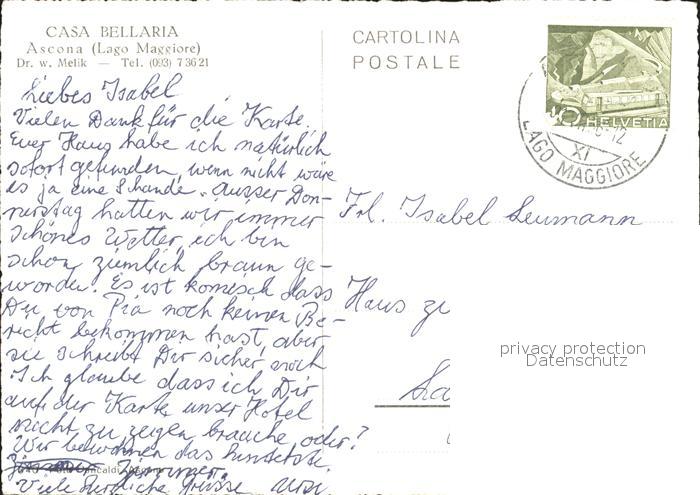 CASA BELLARIA
Ascona (Lago Maggiore)
Dr. w. Melik — Tel. (093) 7 36 21
CARTOLINA
POSTALE
HELVETIA
LAGO MAGGIORE
XI
Liebes Isabel
Vielen Dank für die Karte.
Euer Haus habe ich natürlich
sofort gefunden, wenn nicht wäre
es ja eine Schande. Ausser Don-
nerstag hatten wir immer
schönes Wetter, ich bin
schon ziemlich braun ge-
worden. Es ist komisch dass
Du von Pia noch keinen Be-
richt bekommen hast, aber
sie schreibt Dir sicher noch
Ich glaube dass ich Dir
auf der Karte unser Hotel
nicht zu zeigen brauche, oder?
Wir bewohnen das hinterste
Zimmer.
Viele herzliche Grüsse
Frl. Isabel Leumann
Haus zu
privacy protection
Datenschutz